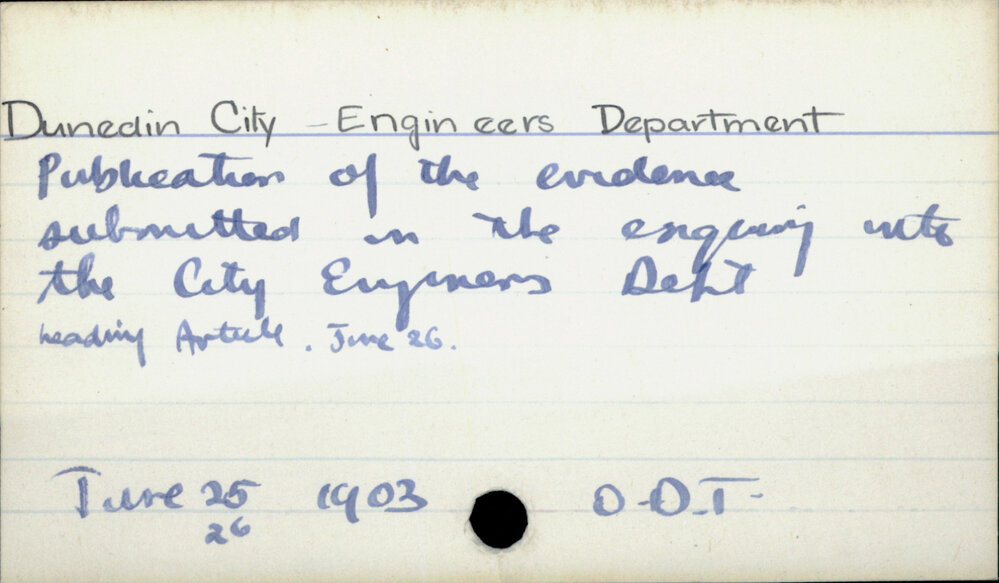 Dunedin City - Engineers Department
Publication of the evidence
submitted in the enquiry into
the City Engineers Dept
Leading Article. June 26.
June 25 1903 O.D.T.
26